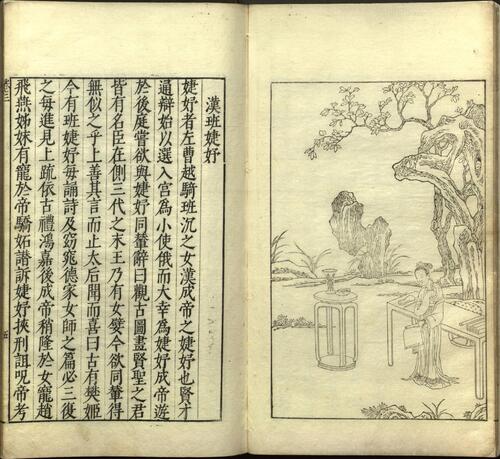 漢班婕妤
婕妤者左曹越騎班沉之女漢成帝之婕妤也賢才
通辯始以選入宮為小使俄而大幸為婕妤成帝遊
於後庭嘗欲與婕妤同輦辭曰觀古圖畫賢聖之君
皆有名臣在側三代之末王乃有女嬖今欲同輦得
無似之乎上善其言而止太后聞而喜曰古有樊姬
今有班婕妤每誦詩及窈窕德家女師之篇必三復
之每進見上疏依古禮鴻嘉後成帝稍隆於女寵趙
飛燕姊妹有寵於帝驕妬譖訴婕妤挾刑詛呪帝考
五